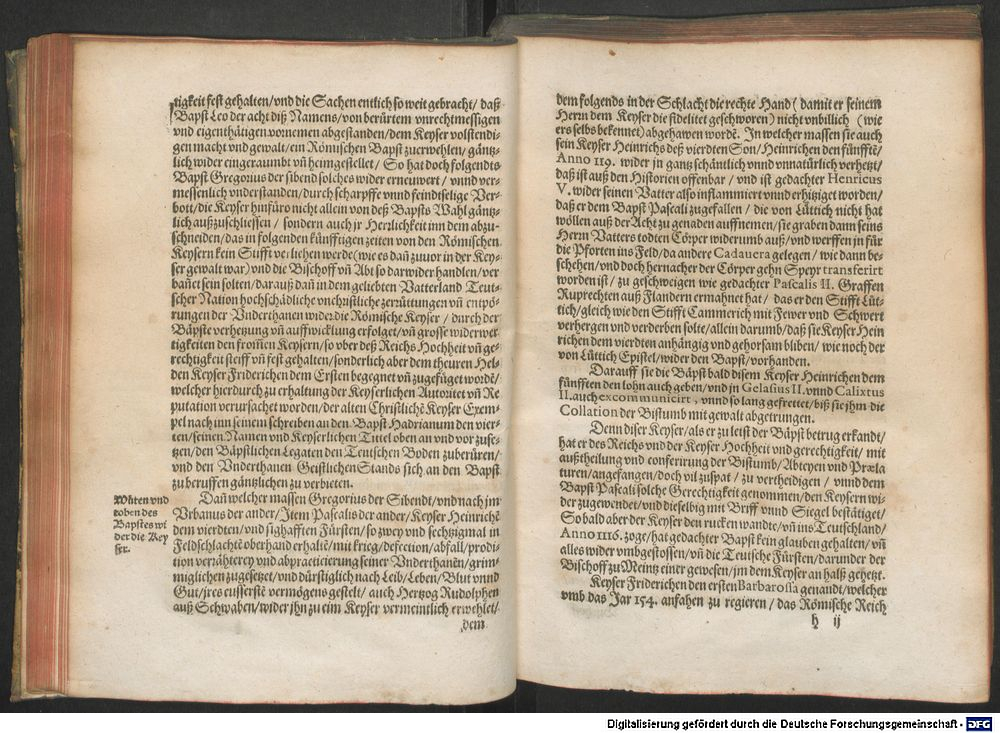 tigkeit fest gehalten/vnd die Sachen entlich so weit gebracht/ daß
Bapst Leo der acht diß Namens/von berürtem vnrechtmessigen
vnd eigenthätigen vornemen abgestanden/dem Keyser volstendi-
gen macht vnd gewalt/ein Römischen Bapst zuerwehlen/gäntz-
lich wider eingeraumbt vñ heimgestellet/ So hat doch folgendts
Bapst Gregorius der sibend solches wider ernewert / vnnd ver-
messenlich vnderstanden/durch scharpffe vnnd feindselige Ver-
bott/die Keyser hinfüro nicht allein von deß Bapsts Wahl gäntz-
lich außzuschliessen / sondern auch jr Herrlichkeit inn dem abzu-
schneiden/das in folgenden künfftigen zeiten von den Römischen
Keysern kein Stifft verliehen werde(wie es dañ zuuor in der Key-
ser gewalt war)vnd die Bischoff vñ Abt so darwider handlen/ver
bañet sein solten/darauß dañ in dem geliebten Vatterland Teut-
scher Nation hochschädliche vnchristliche zerrüttungen vñ entpö-
rungen der Vnderthanen wider die Römische Keyser / durch der
Bäpste verhetzung vñ auffwicklung erfolget/vñ grosse widerwer
tigkeiten den from̃en Keysern/so vber deß Reichs Hochheit vñ ge-
rechtigkeit steiff vñ fest gehalten/sonderlich aber dem theuren Hel-
den Keyser Friderichen dem Ersten begegnet vñ zugefüget wordẽ/
welcher hierdurch zu erhaltung der Keyserlichen Autoritet vñ Re
putation verursachet worden/der alten Christlichẽ Keyser Exem-
pel nach inn seinem schreiben an den Bapst Hadrianum den vier-
ten/seinen Namen vnd Keyserlichen Tittel oben an vnd vor zuse-
tzen/den Bäpstlichen Legaten den Teutschen Boden zuberüren/
vnd den Vnderthanen Geistlichen Stands sich an den Bapst
zuberuffen gäntzlichen zu verbieten.
Wüten vnd
toben des
Bapstes wi
der die Key
ser.
Dañ welcher massen Gregorius der Sibendt/vnd nach jm
Vrbanus der ander/Item Pascalis der ander/Keyser Heinrichẽ
dem vierdten/vnd sighafften Fürsten/so zwey vnd sechtzigmal in
Feldschlachtẽ oberhand erhaltẽ/mit krieg/defection/abfall/prodi
tion verrähterey vnd abpracticierung seiner Vnderthanẽn/grim
miglichen zugesetzt/vnd dürstiglich nach Leib/Leben/Blut vnnd
Gut/jres eusserstẽ vermögens gestelt/ auch Hertzog Rudolphen
auß Schwaben/wider jhn zu eim Keyser vermeintlich erwehlet/
dem
dem folgends in der Schlacht die rechte Hand ( damit er seinem
Herrn dem Keyser die fidelitet geschworen ) nicht vnbillich (wie
er selbs bekennet) abgehawen wordẽ. In welcher massen sie auch
sein Keyser Heinrichs deß vierdten Son/Heinrichen den fünfftẽ/
Anno 119. wider jn gantz schäntlich vnnd vnnatürlich verhetzt/
daß ist auß den Historien offenbar / vnd ist gedachter Henricus
V. wider seinen Vatter also inflammiert vnnd erhitziget worden/
daß er dem Bapst Pascali zugefallen / die von Lüttich nicht hat
wöllen auß der Acht zu genaden auffnemen/sie graben dann seins
Herrn Vatters todten Cörper widerumb auß/vnd werffen jn für
die Pforten ins Feld/da andere Cadauera gelegen/ wie dann be-
schehen/vnd doch hernacher der Cörper gehn Speyr transferirt
worden ist / zu geschweigen wie gedachter Pascalis II. Graffen
Ruprechten auß Flandern ermahnet hat / das er den Stifft Lüt-
tich/gleich wie den Stifft Cammerich mit Fewer vnd Schwert
verhergen vnd verderben solte/allein darumb/daß sie Keyser Hein
richen dem vierdten anhängig vnd gehorsam bliben/ wie noch der
von Lüttich Epistel/wider den Bapst/vorhanden.
Darauff sie die Bäpst bald disem Keyser Heinrichen dem
fünfften den lohn auch geben/vnd jn Gelasius II. vnnd Calixtus
II. auch excommunicirt, vnnd so lang gefrettet/biß sie jhm die
Collation der Bistumb mit gewalt abgetrungen.
Denn diser Keyser/als er zu letst der Bäpst betrug erkandt/
hat er des Reichs vnd der Keyser Hochheit vnd gerechtigkeit/ mit
außtheilung vnd conferirung der Bistumb/Abteyen vnd Præla
turen/angefangen/doch vil zuspat / zu vertheidigen / vnnd dem
Bapst Pascali solche Gerechtigkeit genommen/den Keysern wi-
der zugewendet/vnd dieselbig mit Briff vnnd Siegel bestätiget/
So bald aber der Keyser den rucken wandte/vñ ins Teutschland/
Anno 1116. zoge/hat gedachter Bapst kein glauben gehalten/ vñ
alles wider vmbgestossen/ vñ die Teutsche Fürsten/darunder der
Bischoff zu Meintz einer gewesen/jm dem Keyser an halß gehetzt.
Keyser Friderichen den ersten Barbarossa genandt/welcher
vmb das Jar 154. anfahen zu regieren / das Römische Reich
h ij
Digitalisierung gefördert durch die Deutsche Forschungsgemeinschaft - DFG